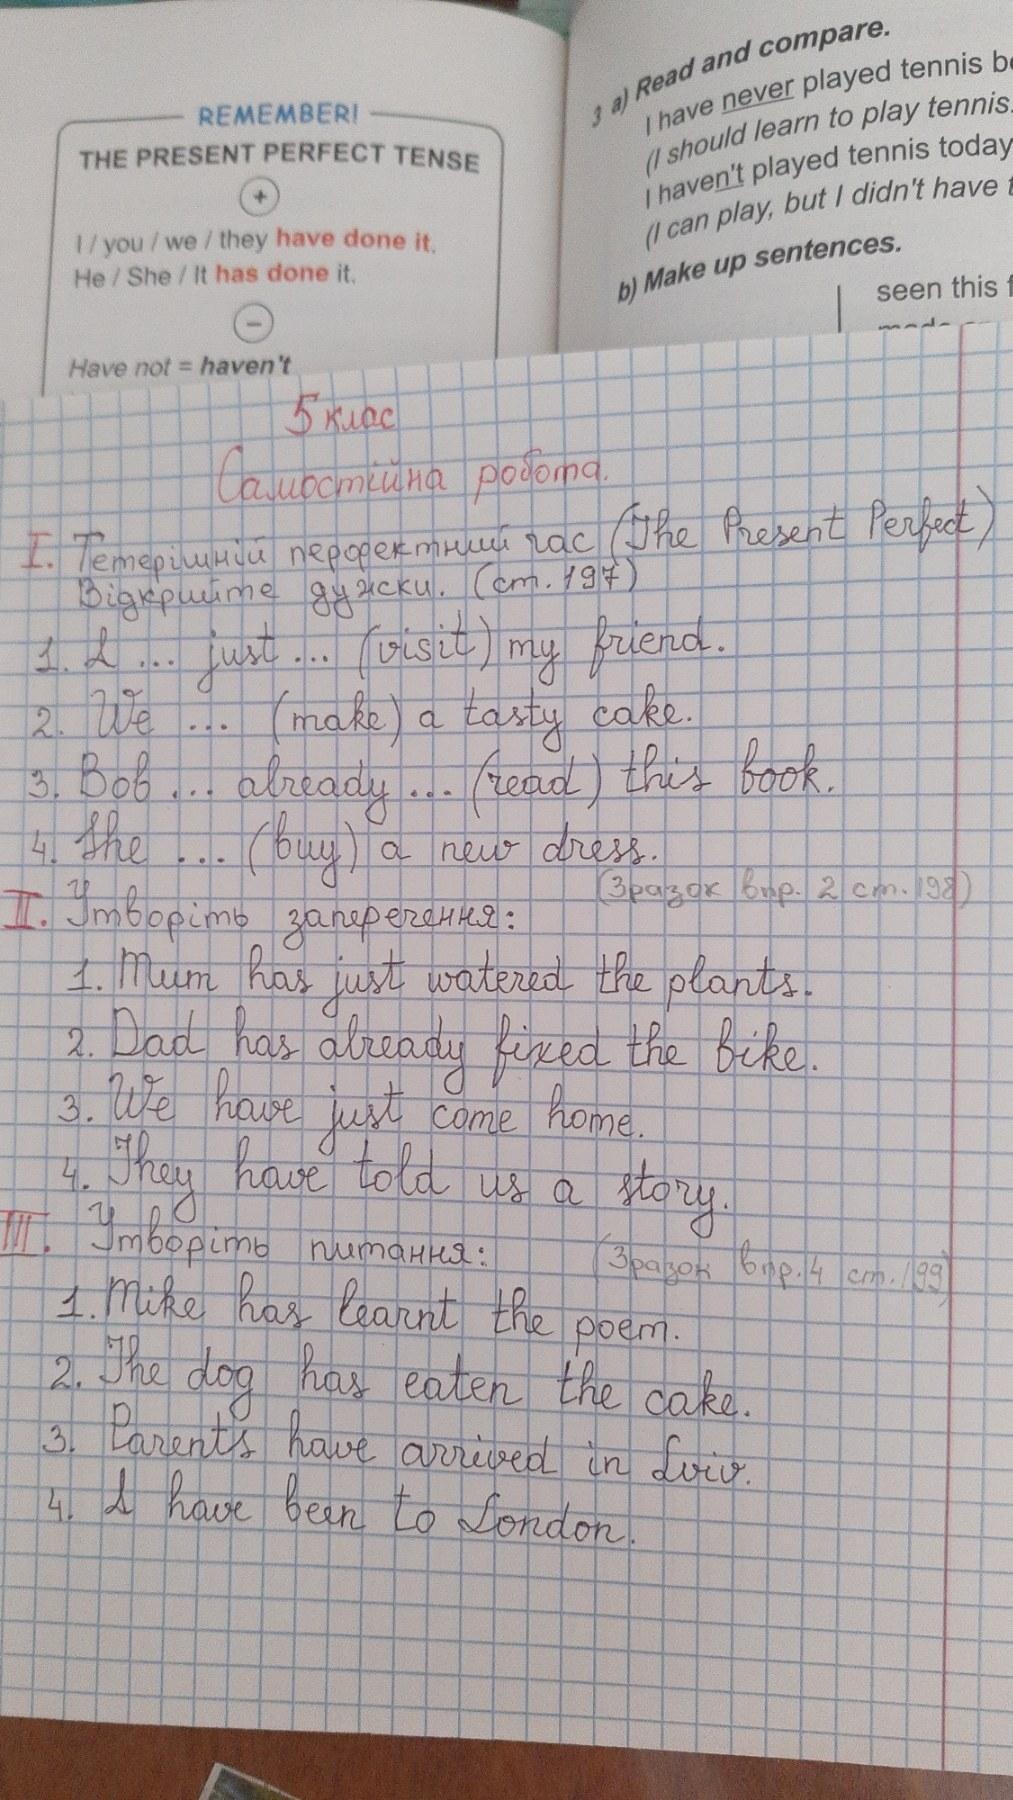 REMEMBER!
THE PRESENT PERFECT TENSE
+
I / you / we / they have done it.
He / She / It has done it.
−
Have not = haven't
3 a) Read and compare.
I have never played tennis
(I should learn to play tennis.
I haven't played tennis today
(I can play, but I didn't have
b) Make up sentences.
seen this
5 клас
Самостійна робота.
I. Теперішній перфектний час (The Present Perfect)
Відкрийте дужки. (ст. 197)
1. I ... just ... (visit) my friend.
2. We ... (make) a tasty cake.
3. Bob ... already ... (read) this book.
4. She ... (buy) a new dress.
(Зразок впр. 2 ст. 198)
II. Утворіть заперечення:
1. Mum has just watered the plants.
2. Dad has already fixed the bike.
3. We have just come home.
4. They have told us a story.
III. Утворіть питання: (Зразок впр. 4 ст. 199)
1. Mike has learnt the poem.
2. The dog has eaten the cake.
3. Parents have arrived in Lviv.
4. I have been to London.